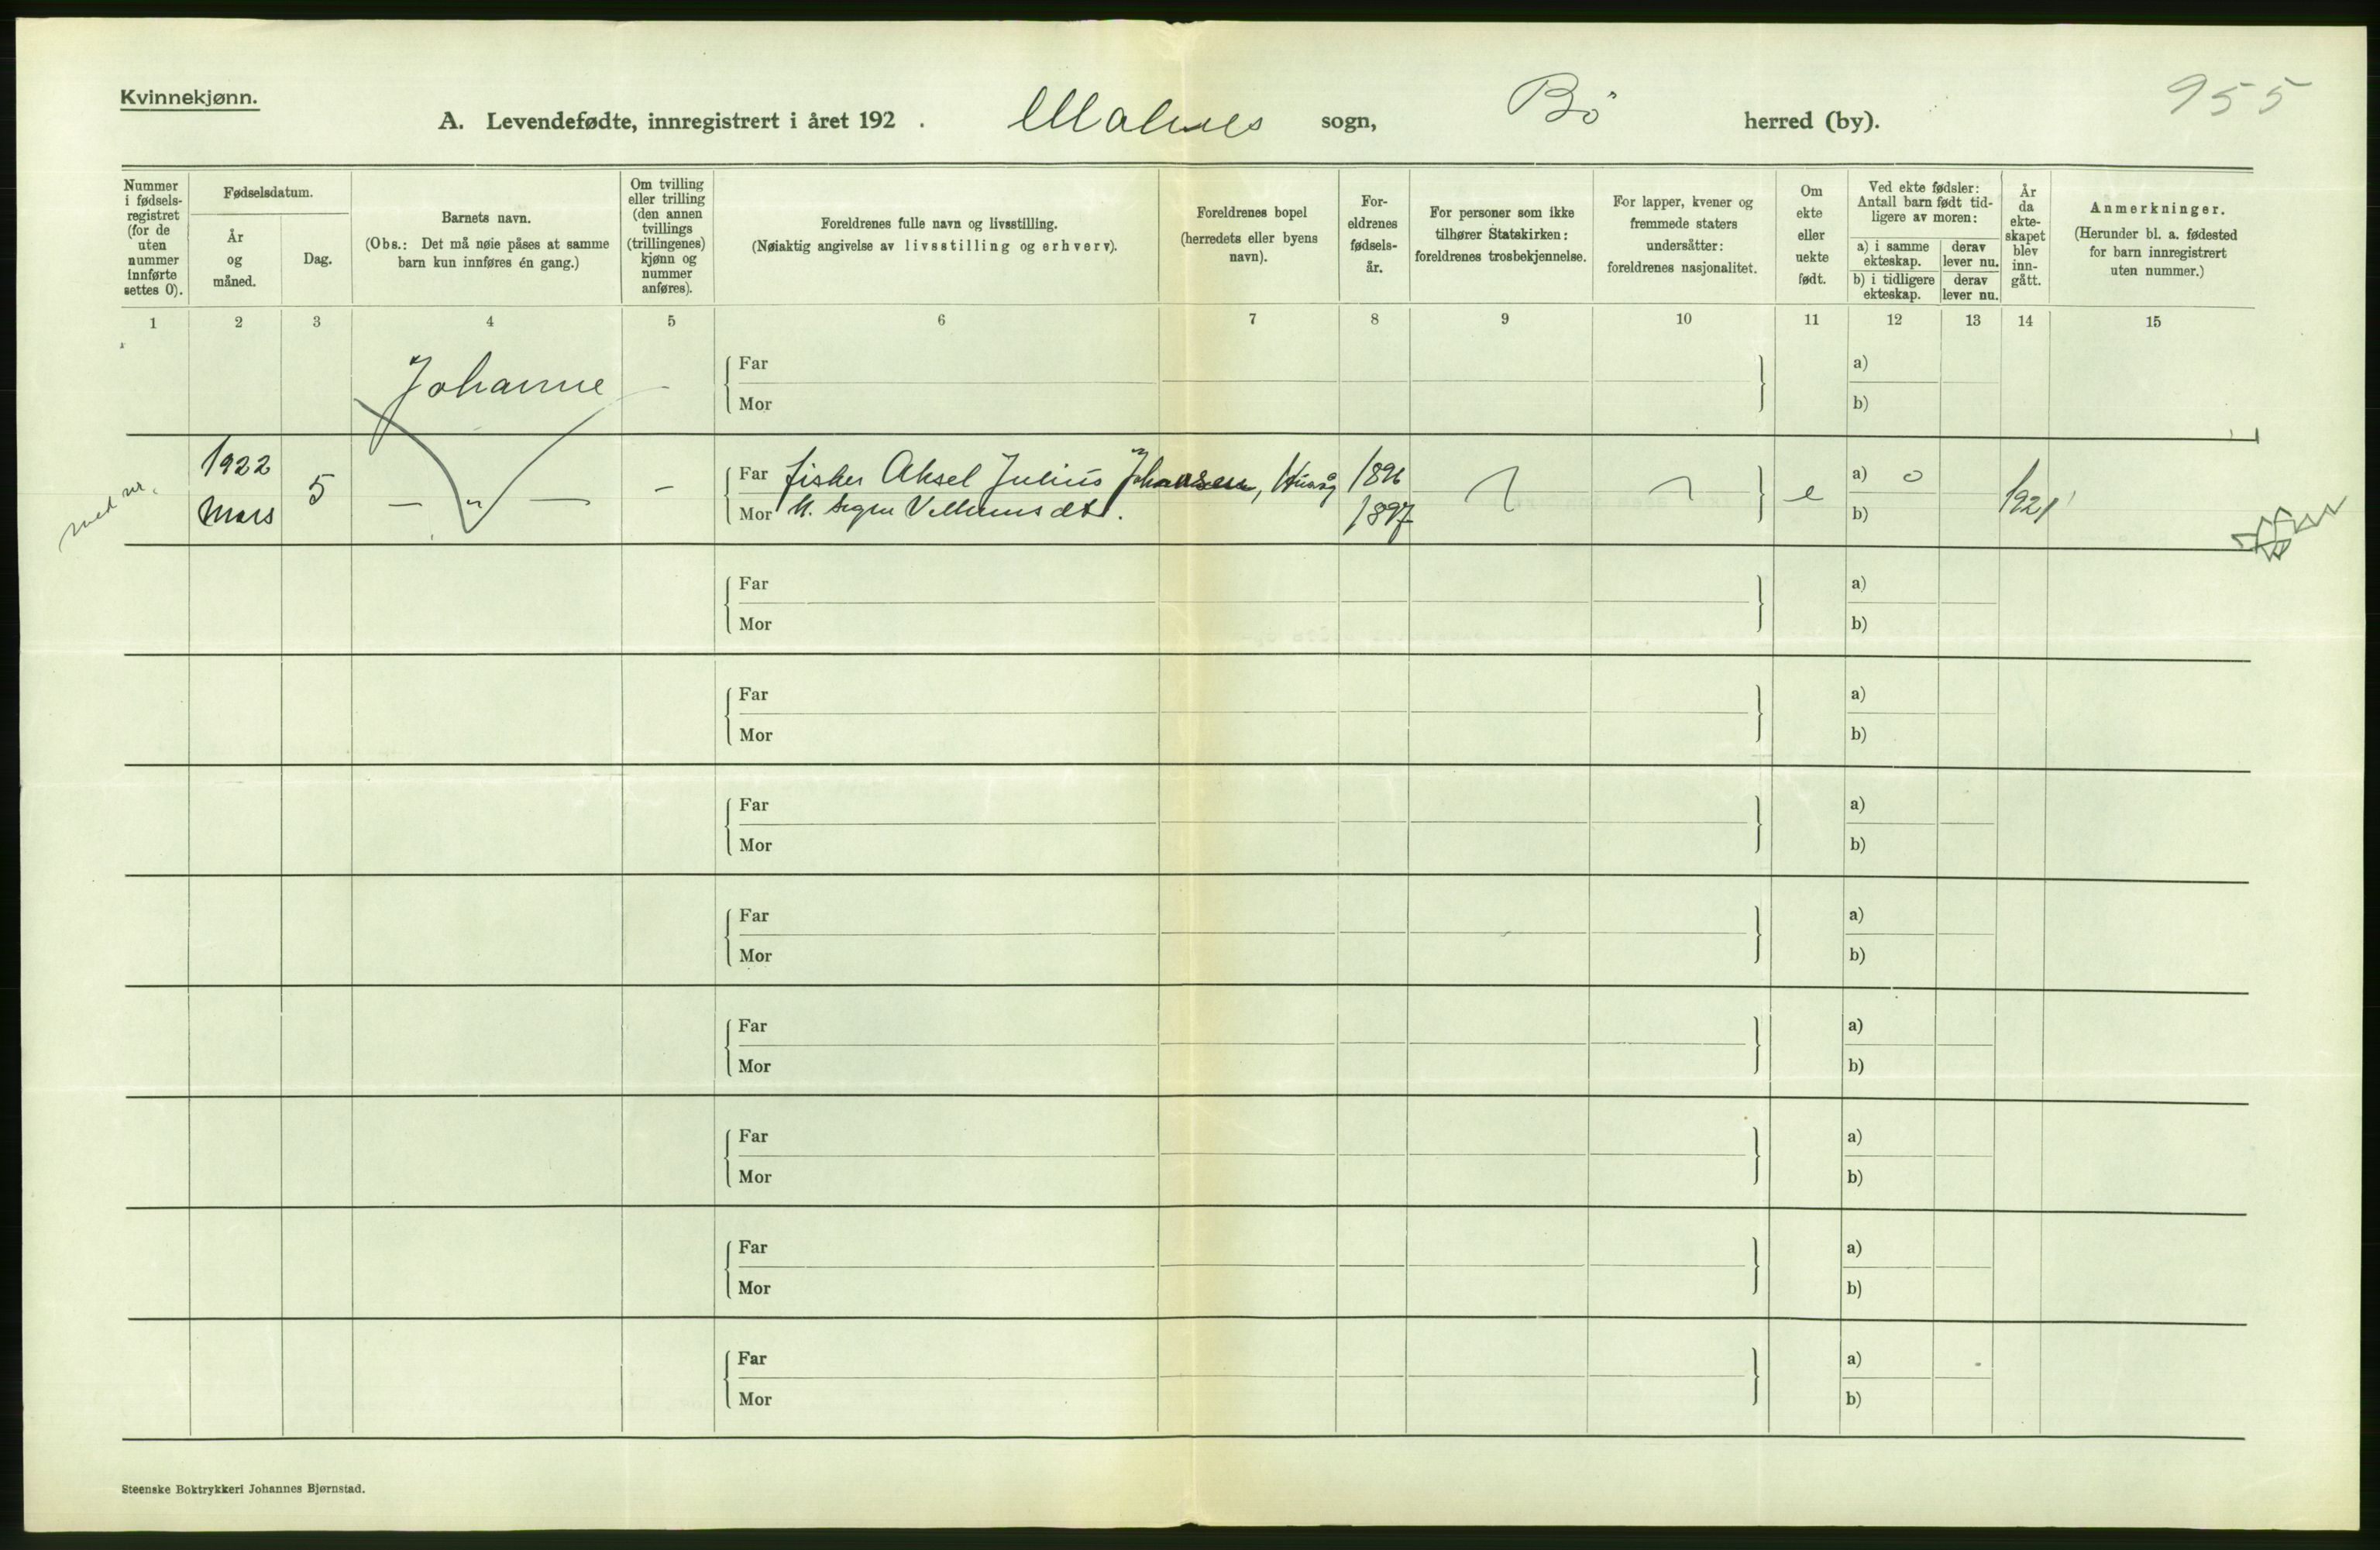 Kvinnekjønn.
955
A. Levendefødte, innregistrert i året 192 . Malnes sogn, Bö herred (by).
Nummer i fødsels-registret (for de uten nummer innførte settes 0).
Fødselsdatum.
År og måned.
Dag.
Barnets navn.
(Obs.: Det må nøie påses at samme barn kun innføres én gang.)
Om tvilling eller trilling (den annen tvillings (trillingenes) kjønn og nummer anføres).
Foreldrenes fulle navn og livsstilling.
(Nøiaktig angivelse av livsstilling og erhverv).
Foreldrenes bopel (herredets eller byens navn).
For-eldrenes fødsels-år.
For personer som ikke tilhører Statskirken: foreldrenes trosbekjennelse.
For lapper, kvener og fremmede staters undersåtter: foreldrenes nasjonalitet.
Om ekte eller uekte født.
Ved ekte fødsler: Antall barn født tid-ligere av moren:
a) i samme ekteskap.
derav lever nu.
b) i tidligere ekteskap.
derav lever nu.
År da ekte-skapet blev inn-gått.
Anmerkninger.
(Herunder bl. a. fødested for barn innregistrert uten nummer.)
1 2 3 4 5 6 7 8 9 10 11 12 13 14 15
Johanne — Far a)
Mor b)
med nr.
1922 Mars 5 — " — — Far fisker Aksel Julius Johansen, 1896 e a) 0 1921
Mor Vilhelmsdtr. 1897 b)
Far a)
Mor b)
Far a)
Mor b)
Far a)
Mor b)
Far a)
Mor b)
Far a)
Mor b)
Far a)
Mor b)
Far a)
Mor b)
Far a)
Mor b)
Steenske Boktrykkeri Johannes Bjørnstad.